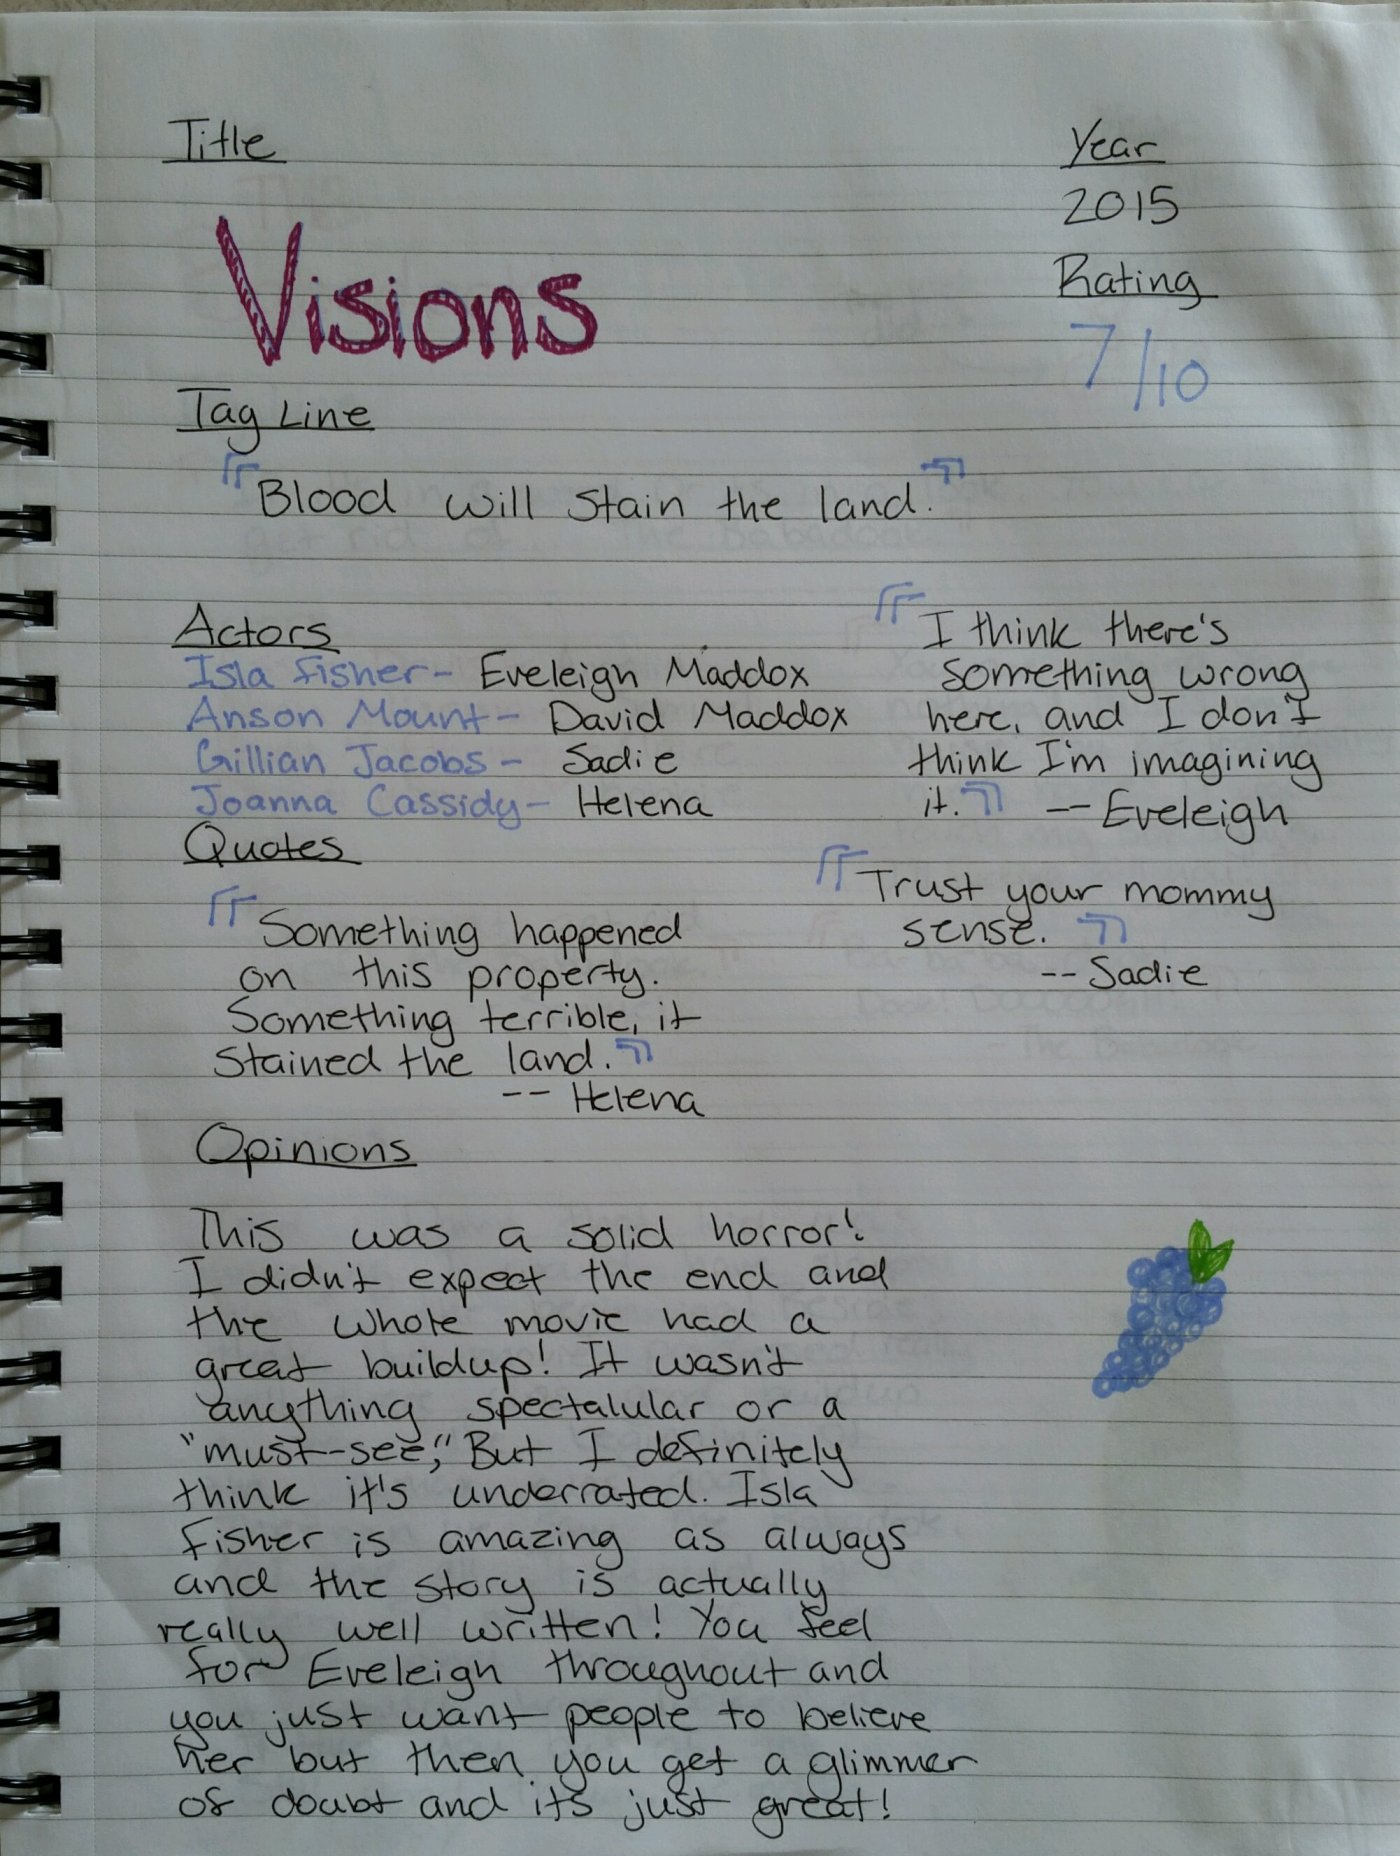 Title
Year
2015
Visions
Rating
7/10
Tag Line
"Blood will stain the land."
Actors
Isla Fisher- Eveleigh Maddox
Anson Mount- David Maddox
Gillian Jacobs- Sadie
Joanna Cassidy- Helena
"I think there's
something wrong
here, and I don't
think I'm imagining
it." -- Eveleigh
Quotes
"Something happened
on this property.
Something terrible, it
stained the land."
-- Helena
"Trust your mommy
sense."
-- Sadie
Opinions
This was a solid horror!
I didn't expect the end and
the whole movie had a
great buildup! It wasn't
anything spectalular or a
"must-see," But I definitely
think it's underrated. Isla
Fisher is amazing as always
and the story is actually
really well written! You feel
for Eveleigh throughout and
you just want people to believe
her but then you get a glimmer
of doubt and it's just great!